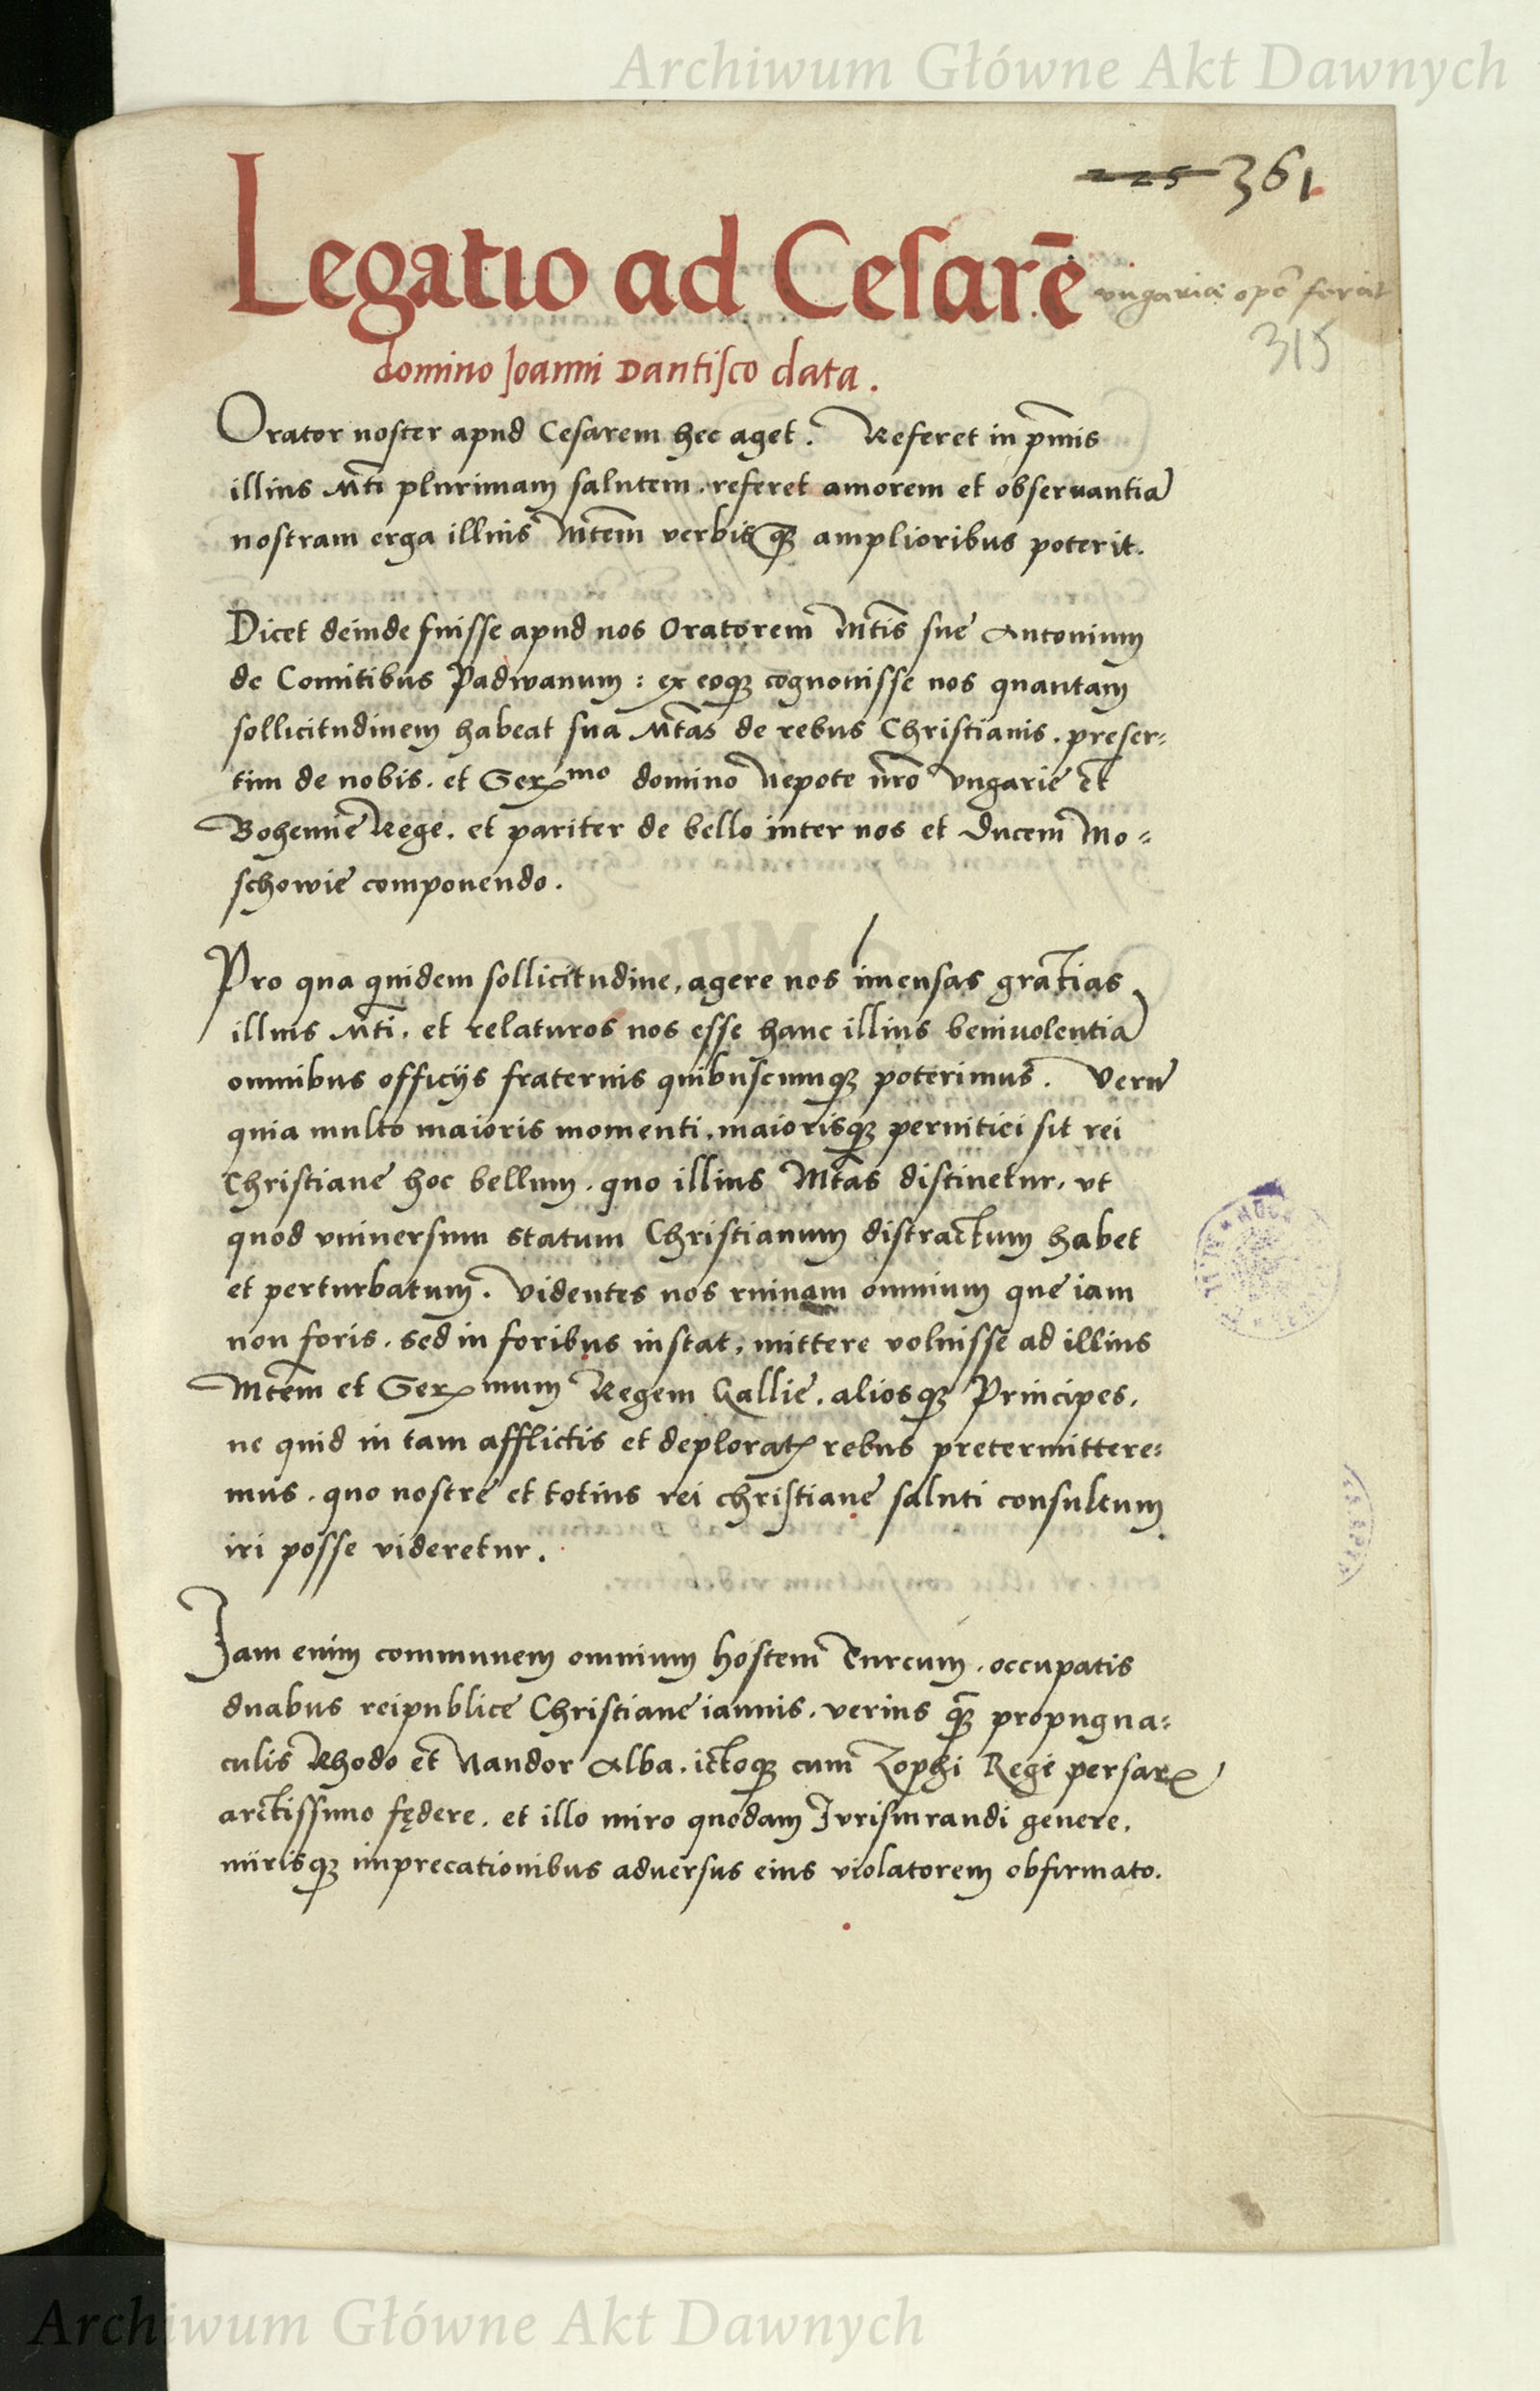 Archiwum Główne Akt Dawnych
225 361
Legatio ad Cesarē
vngarice opē ferat
315
domino Joanni Dantisco data.
Orator noster apud Cesarem hec aget. Referet in p̄mis
illius M̄ti plurimam salutem. referet amorem et obseruantiā
nostram erga illius M̄tem verbis q̄ꝫ amplioribus poterit.
Dicet deinde fuisse apud nos Oratorem M̄tis sue Antonium
de Comitibus Padwanum : ex eoqꝫ cognouisse nos quantam
sollicitudinem habeat sua M̄tas de rebus Christianis. preser=
tim de nobis. et Serꝫmo domino Nepote nr̄o Vngarie et
Bohemie Rege. et pariter de bello inter nos et Ducem Mo=
schowie componendo.
Pro qua quidem sollicitudine, agere nos imensas gratias
illius M̄ti. et relaturos nos esse hanc illius beniuolentiā
omnibus officijs fraternis quibuscunqꝫ poterimus. Verū
quia multo maioris momenti. maiorisqꝫ pernitiei sit rei
Christiane hoc bellum. quo illius M̄tas distinetur. vt
quod vniuersum statum Christianum distractum habet
et perturbatum. Videntes nos ruinam omnium que iam
non foris. sed in foribus instat, mittere voluisse ad illius
M̄tem et Serꝫmum Regem Gallie. aliosqꝫ Principes.
ne quid in tam afflictis et deploratꝭ rebus pretermittere=
mus. quo nostre et totius rei christiane saluti consultum
iri posse videretur.
Jam enim communem omnium hostem Turcum. occupatis
duabus reipublice Christiane ianuis. verius q̄ꝫ propugna=
culis Rhodo et Nandor Alba. ictoqꝫ cum Zophi Rege persarꝝ
arctissimo fędere. et illo miro quodam Jurisiurandi genere.
mirisqꝫ imprecationibus aduersus eius violatorem obfirmato.
Archiwum Główne Akt Dawnych